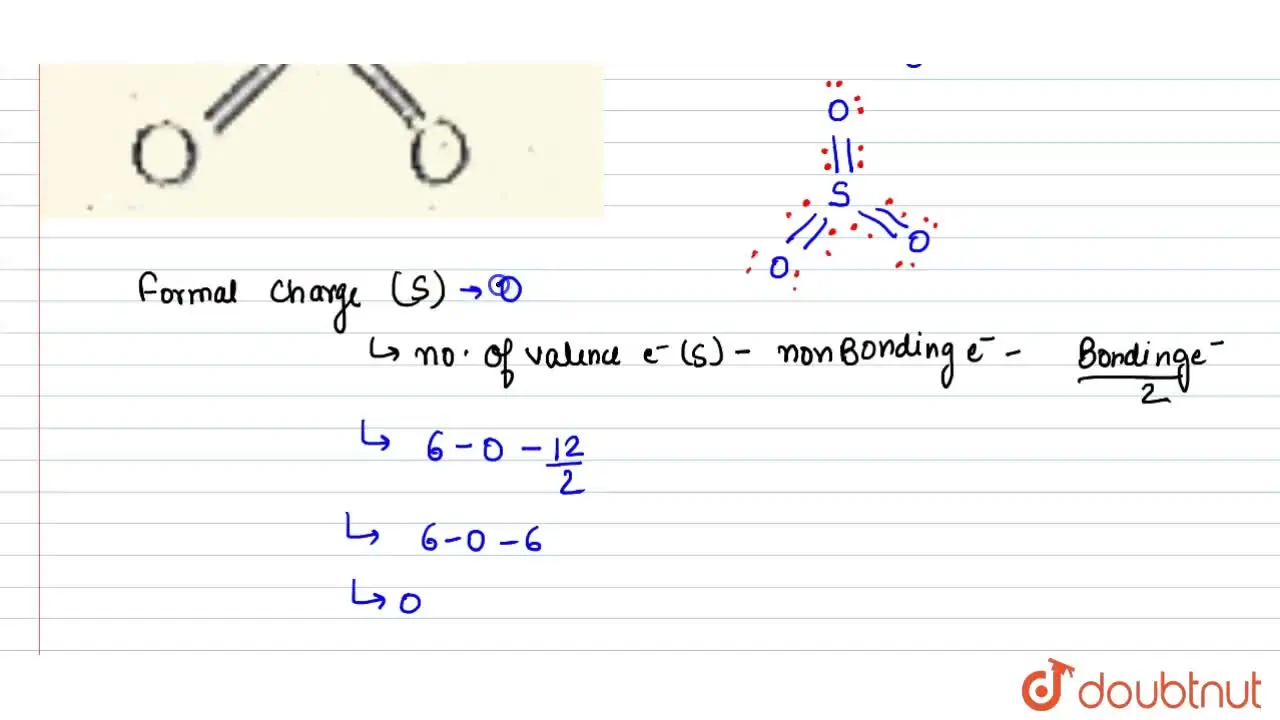 O
S
O O
O O
Formal Charge (S) → 0
↳ no. of valence e⁻ (S) - non Bonding e⁻ - Bonding e⁻/2
↳ 6 - 0 - 12/2
↳ 6 - 0 - 6
↳ 0
doubtnut